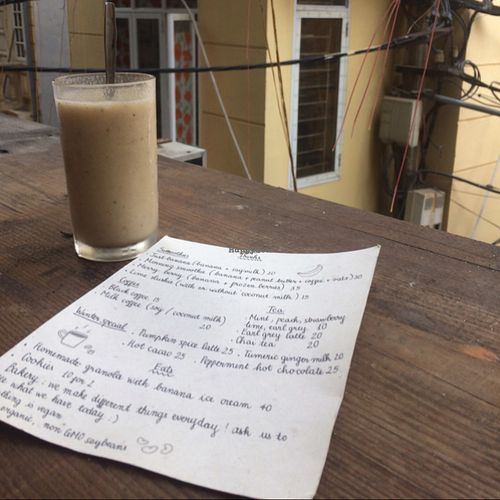 Drinks
Smoothies
· Just banana (banana + soymilk) 20
· Morning smoothie (banana + peanut butter + coffee + oats) 30
· Merry berry (banana + frozen berries) 35
· Lime slushie (with or without coconut milk) 15
Coffee
Black coffee 15
Milk coffee (soy / coconut milk) 20
Tea
· Mint, peach, strawberry
lime, earl grey 10
· Earl grey latte 20
· Chai tea 20
Winter special
· Pumpkin spice latte 25 · Turmeric ginger milk 20
· Hot cacao 25 · Peppermint hot chocolate 25
Eats
· Homemade granola with banana ice cream 40
Cookies 10 for 2
Bakery: we make different things everyday! ask us to
see what we have today :)
thing is vegan
organic, non GMO soybeans